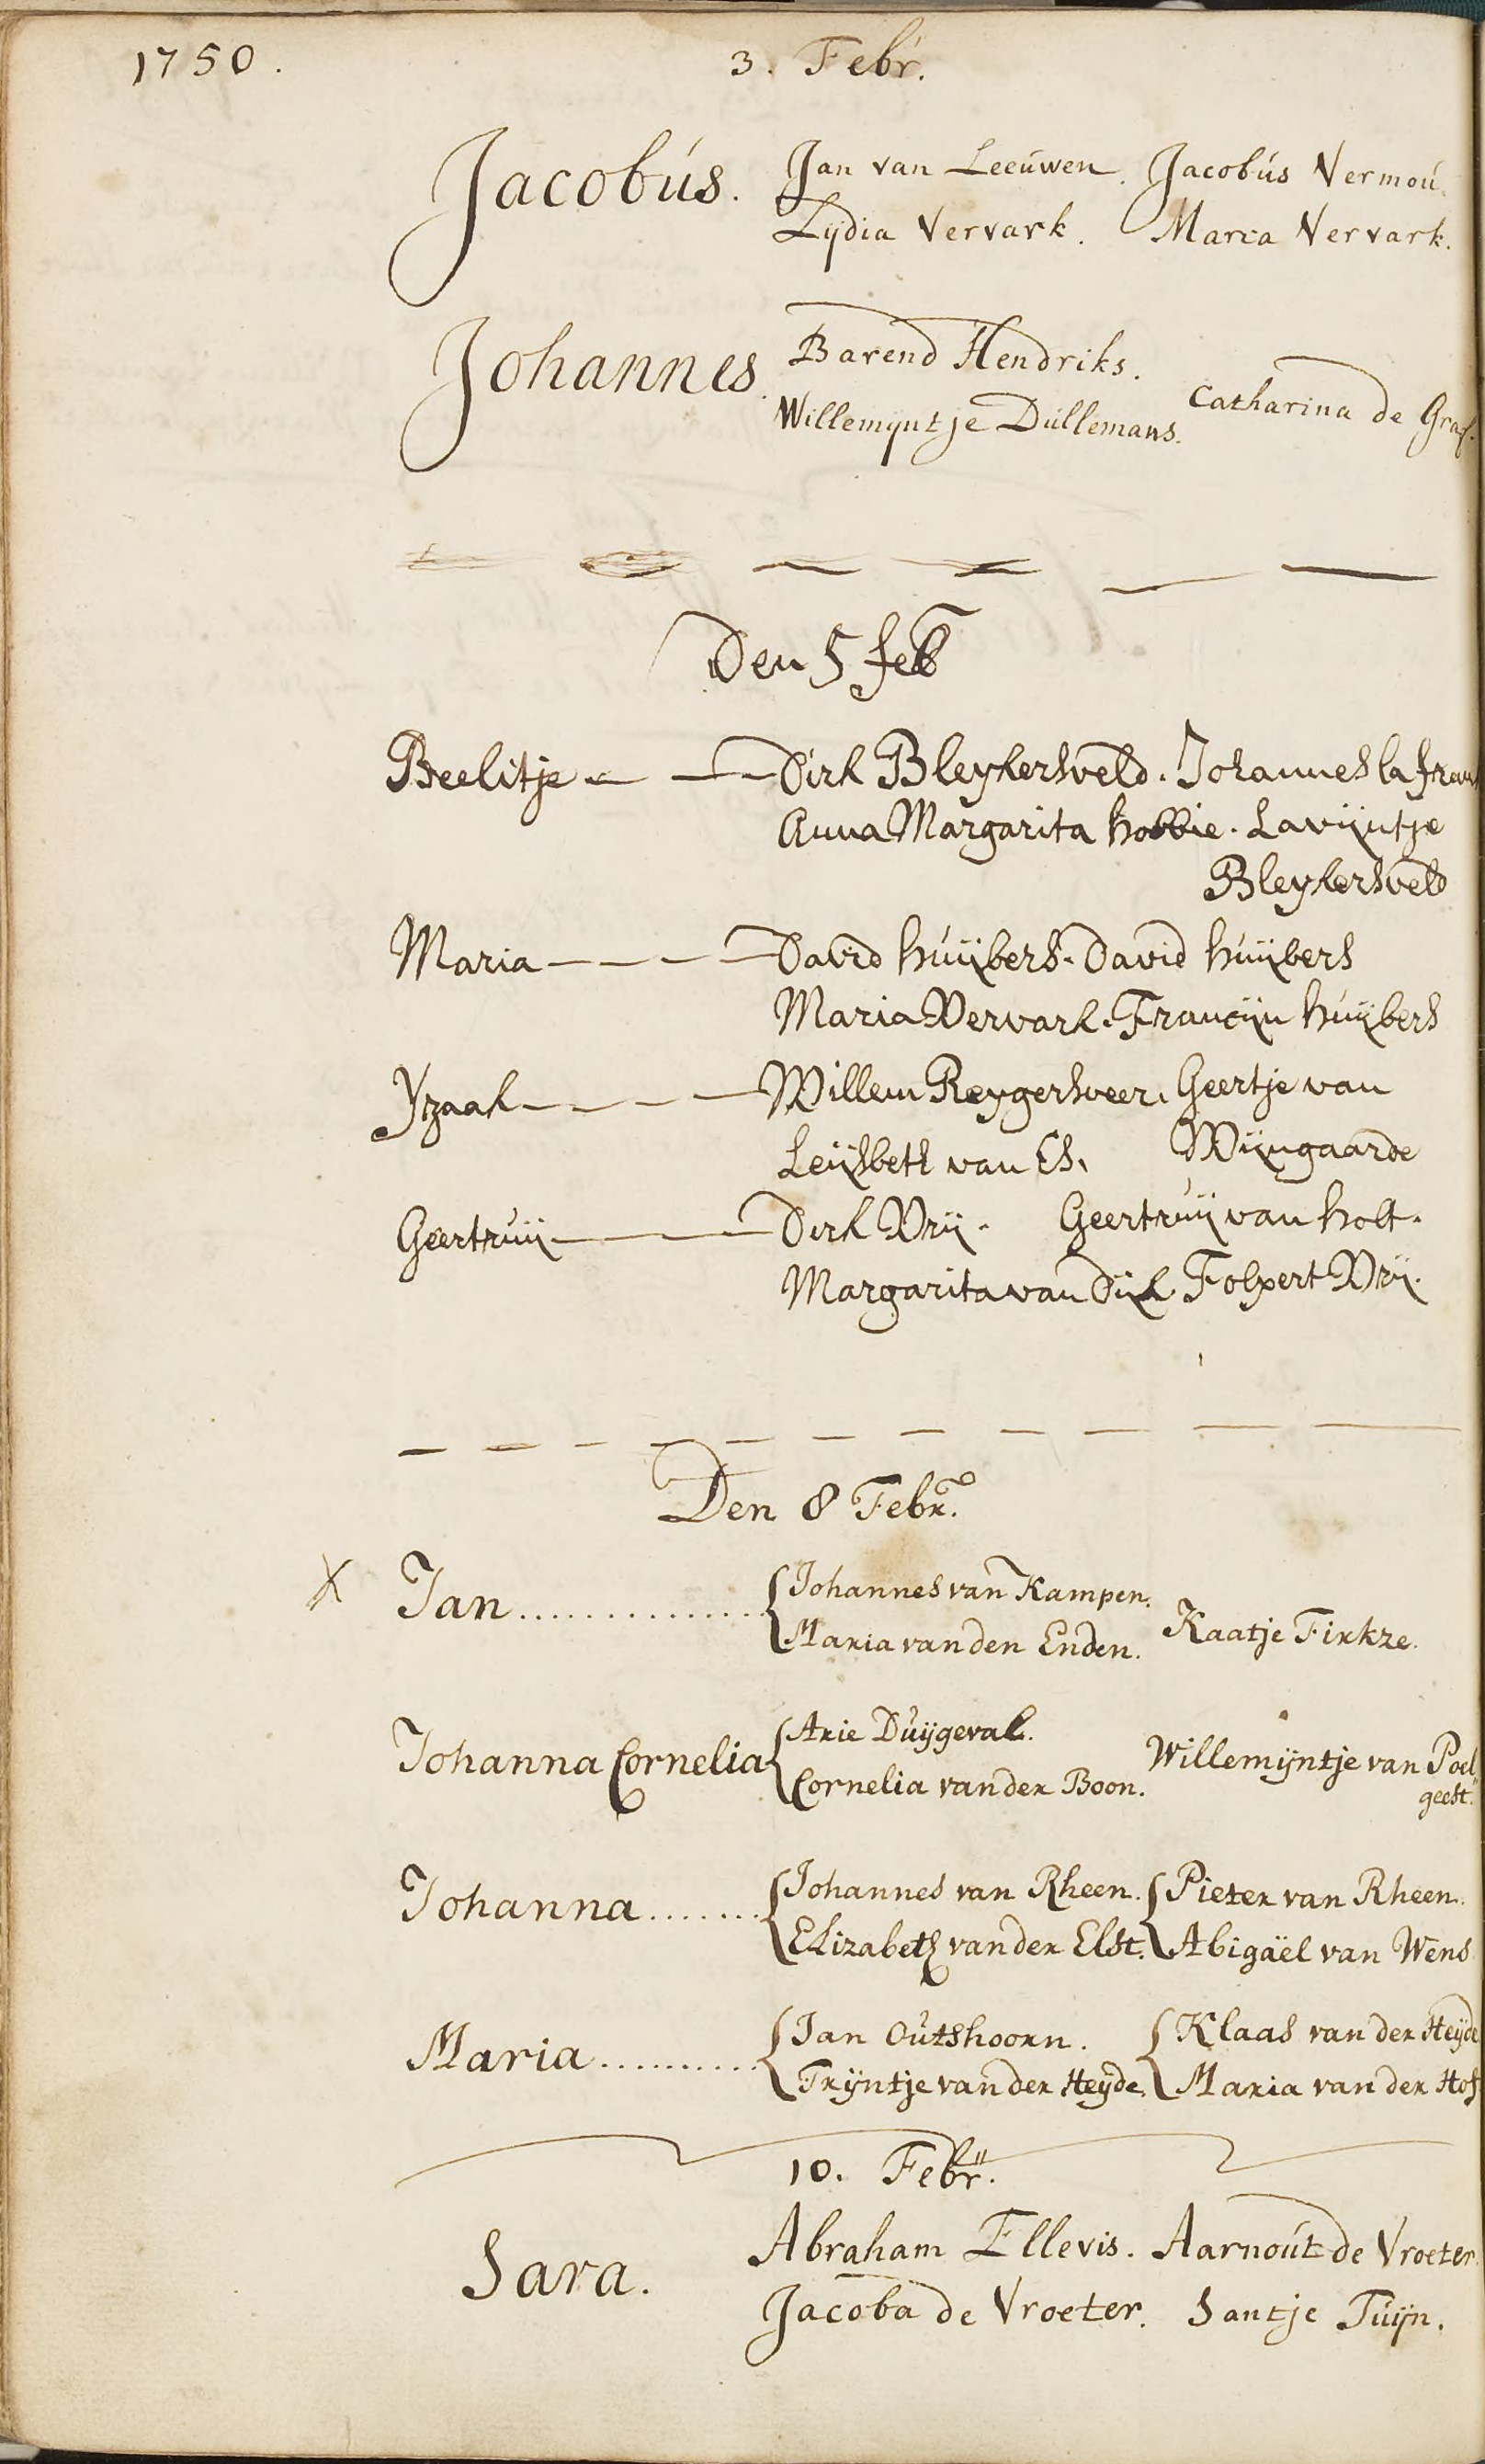 1750. 3. Febr.
Jacobús. Jan van Leeúwen. Jacobús Vermoú.
Lydia Vervark. Maria Vervark.
Johannes. Barend Hendriks.
Catharina de Graf.
Willemijntje Dúllemans.
Den 5 feb
Beelitje — — — Dirk Bleykersveld. Johannes la fran
Anna Margarita hobbie. Lavijntje
Bleykersveld
Maria — — — — David húijbers. David húijbers
Maria Vervark. Francijn húijbers
Yzaak — — — — Willem Reygersveer. Geertje van
Leijsbeth van Es. Wijngaarde
Geertruij — — — Dirk Vrij. Geertruij van holt.
Margarita van Dijk. Folpert Vrij.
Den 8 Febr.
X Jan............... {Johannes van Kampen.
Kaatje Firkze.
Maria van den Enden.
Johanna Cornelia {Arie Dúijgeval.
Willemijntje van Poel„
Cornelia van der Boon. geest.
Johanna....... {Johannes van Rheen. {Pieter van Rheen.
Elizabeth van der Elst. Abigaël van Wens
Maria.......... {Jan Oútshoorn. {Klaas van der Heyde
Trijntje van der Heyde. Maria van der Hof
10. Febr.
Sara. Abraham Ellevis. Aarnoút de Vroeter.
Jacoba de Vroeter. Santje Túijn.